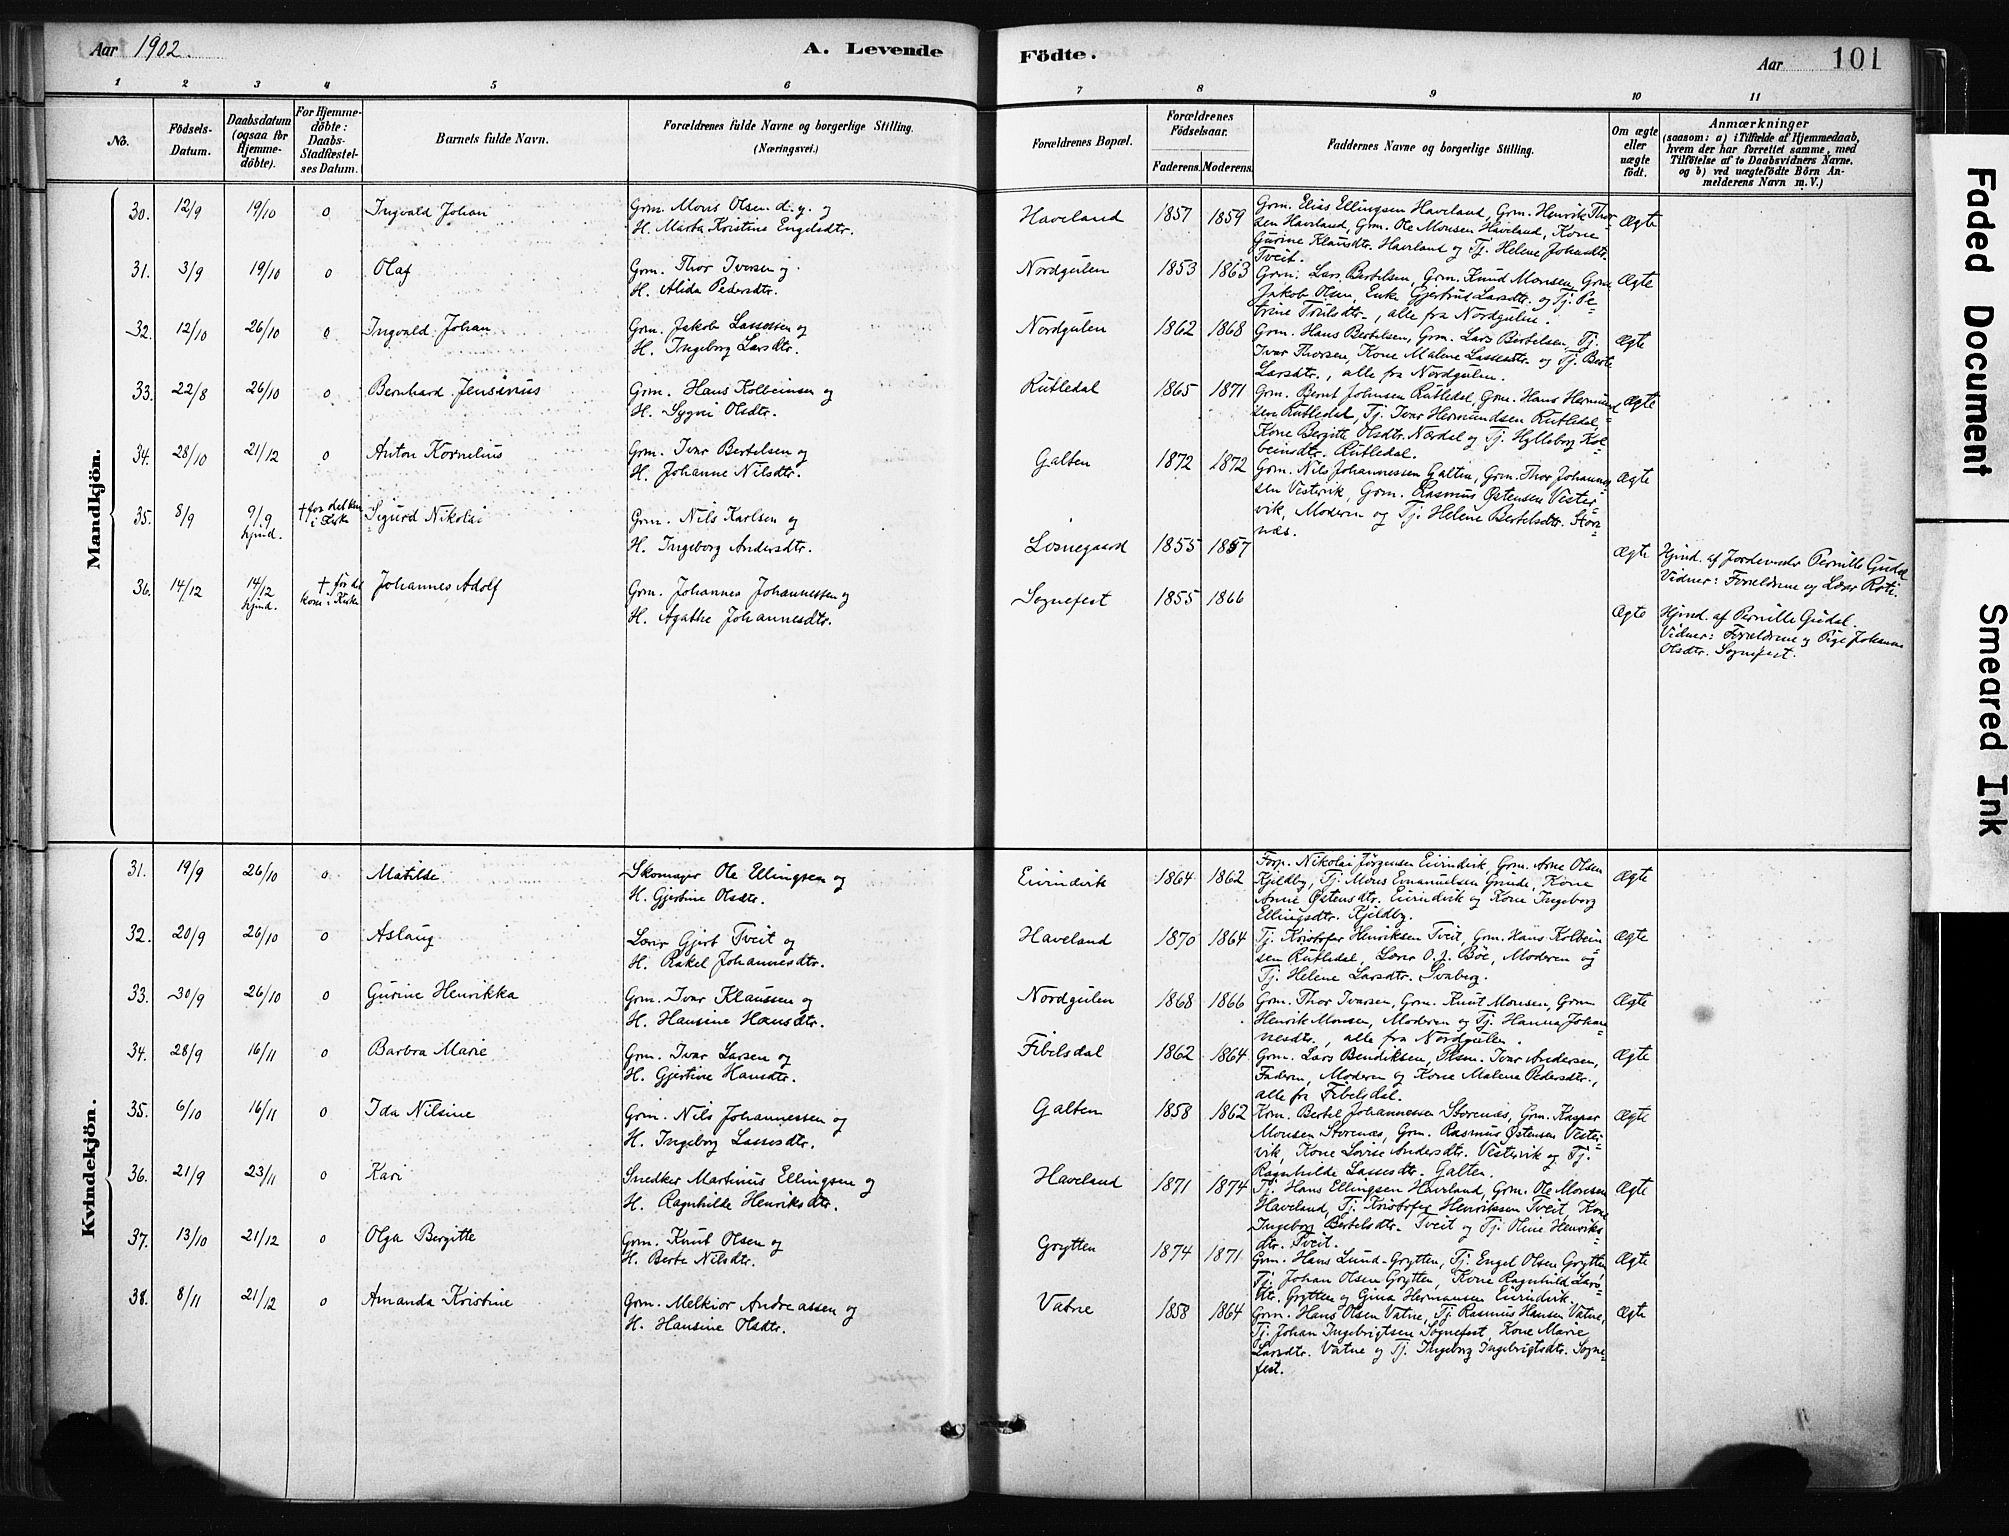 Aar 1902.
A. Levende
Födte.
Aar
101
1 2 3 4 5 6 7 8 9 10 11
No.
Födsels-
Datum.
Daabsdatum
(ogsaa for
Hjemme-
döbte).
For Hjemme-
döbte:
Daabs-
Stadfæstel-
ses Datum.
Barnets fulde Navn.
Forældrenes fulde Navne og borgerlige Stilling.
(Næringsvei.)
Forældrenes Bopæl.
Forældrenes
Födselsaar.
Faderens. Moderens.
Faddernes Navne og borgerlige Stilling.
Om ægte
eller
uægte
födt.
Anmærkninger
(saasom: a) i Tilfælde af Hjemmedaab,
hvem der har forrettet samme, med
Tilföielse af to Daabsvidners Navne.
og b) ved uægtefödte Börn An-
melderens Navn m. V.)
Mandkjön.
30. 12/9 19/10 0 Ingvald Johan
Grm. Mons Olsen d.y. og
H. Marta Kristine Engelsdtr.
Haveland 1857 1859
Grm. Elias Ellingsen Haveland, Grm. Henrik Thor-
sen Haveland, Grm. Ole Monsen Haveland, Kone
Gurine Klausdtr. Haveland og Tj. Helene Johansdtr.
Tveit.
Ægte
31. 3/9 19/10 0 Olaf
Grm. Thor Iversen og
H. Alida Pedersdtr.
Nordgulen 1853 1863
Grm. Lars Bertelsen, Grm. Knud Monsen, Grm.
Jakob Olsen, Enke Gjertrud Larsdtr. og Tj. Pe-
trine Troulsdtr., alle fra Nordgulen.
Ægte
32. 12/10 26/10 0 Ingvald Johan
Grm. Jakob Lassesen og
H. Ingeborg Larsdtr.
Nordgulen 1862 1868
Grm. Hans Bertelsen, Grm. Lars Bertelsen, Tj.
Ivar Thorsen, Kone Malene Lassesdtr. og Tj. Berte
Larsdtr., alle fra Nordgulen.
Ægte
33. 22/8 26/10 0 Bernhard Jensenius
Grm. Hans Kolbeinsen og
H. Sygni Olsdtr.
Rutledal 1865 1871
Grm. Bernt Johnsen Rutledal, Grm. Hans Hermund-
sen Rutledal, Tj. Ivar Hermundsen Rutledal,
Kone Bergitte Olsdtr. Nærdal og Tj. Hylleborg Kol-
beinsdtr. Rutledal.
Ægte
34. 28/10 21/12 0 Anton Kornelius
Grm. Ivar Bertelsen og
H. Johanne Nilsdtr.
Galten 1872 1872
Grm. Nils Johannessen Galten, Grm. Thor Johannes-
sen Vestervik, Grm. Rasmus Østensen Vester-
vik, Moderen og Tj. Helene Bertelsdtr. Stor-
næs.
Ægte
35. 8/9 9/9 hjmd. † før det kom i Kirke Sigurd Nikolai
Grm. Nils Karlsen og
H. Ingeborg Andersdtr.
Losnegaard 1855 1857
Ægte
Hjmd. af Jordemoder Pernille Gudal
Vidner: Forældrene og Lærer
36. 14/12 14/12 hjmd. † før det kom i Kirke Johannes Adolf
Grm. Johannes Johannessen og
H. Agathe Johannesdtr.
Sognefest 1855 1866
Ægte
Hjmd. af Pernille Gudal.
Vidner: Forældrene og Pige Johanne
Olsdtr. Sognefest.
Kvindekjön.
31. 19/9 26/10 0 Matilde
Skomager Ole Ellingsen og
H. Gjertine Olsdtr.
Eivindvik 1864 1862
Forp. Nikolai Jørgensen Eivindvik, Grm. Arne Olsen
Kjeldby, Tj. Mons Emanuelsen Grinde, Kone
Anne Østensdtr. Eivindvik og Kone Ingeborg
Ellingsdtr. Kjeldby.
Ægte
32. 20/9 26/10 0 Aslaug
Lærer Gjert Tveit og
H. Rakel Johannesdtr.
Haveland 1870 1864
Tj. Kristofer Henriksen Tveit, Grm. Hans Kolbein-
sen Rutledal, Lærer O. J. Böe, Moderen og
Tj. Helene Larsdtr. Svaberg.
Ægte
33. 30/9 26/10 0 Gurine Henrikka
Grm. Ivar Klaussen og
H. Hansine Hansdtr.
Nordgulen 1868 1866
Grm. Thor Ivarsen, Grm. Knut Monsen, Grm.
Henrik Monsen, Moderen og Tj. Hanna Johan-
nesdtr., alle fra Nordgulen.
Ægte
34. 28/9 16/11 0 Barbra Marie
Grm. Ivar Larsen og
H. Gjertine Hansdtr.
Fibelsdal 1862 1864
Grm. Lars Bendiksen, Plsm. Ivar Andersen,
Faderen, Moderen og Kone Malene Pedersdtr.,
alle fra Fibelsdal.
Ægte
35. 6/10 16/11 0 Ida Nilsine
Grm. Nils Johannessen og
H. Ingeborg Lassesdtr.
Galten 1858 1862
Krm. Bertel Johannessen Storenæs, Grm. Kaspar
Monsen Storenæs, Grm. Rasmus Østensen Vester-
vik, Kone Lovise Andersdtr. Vestervik og Tj.
Ragnhilde Lassesdtr. Galten.
Ægte
36. 21/9 23/11 0 Kari
Snedker Martinus Ellingsen og
H. Ragnhilde Henriksdtr.
Haveland 1871 1874
Tj. Hans Ellingsen Haveland, Grm. Ole Monsen
Haveland, Tj. Kristofer Henrikssen Tveit, Kone
Ingeborg Bertelsdtr. Tveit og Tj. Oline Henriks-
dtr. Tveit.
Ægte
37. 13/10 21/12 0 Olga Bergitte
Grm. Knut Olsen og
H. Berte Nilsdtr.
Grytten 1874 1871
Grm. Hans Lund-Grytten, Tj. Engel Olsen Grytten
Tj. Johan Olsen Grytten, Kone Ragnhild Lars-
dtr. Grytten og Gina Hermansen Eivindvik.
Ægte
38. 8/11 21/12 0 Amanda Kristine
Grm. Melkior Andreassen og
H. Hansine Olsdtr.
Vatne 1858 1864
Grm. Hans Olsen Vatne, Tj. Rasmus Hansen Vatne,
Tj. Johan Ingebrigtsen Sognefest, Kone Marie
Larsdtr. Vatne og Tj. Ingeborg Ingebrigtsdtr. Sogne-
fest.
Ægte
Faded Document
Smeared Ink